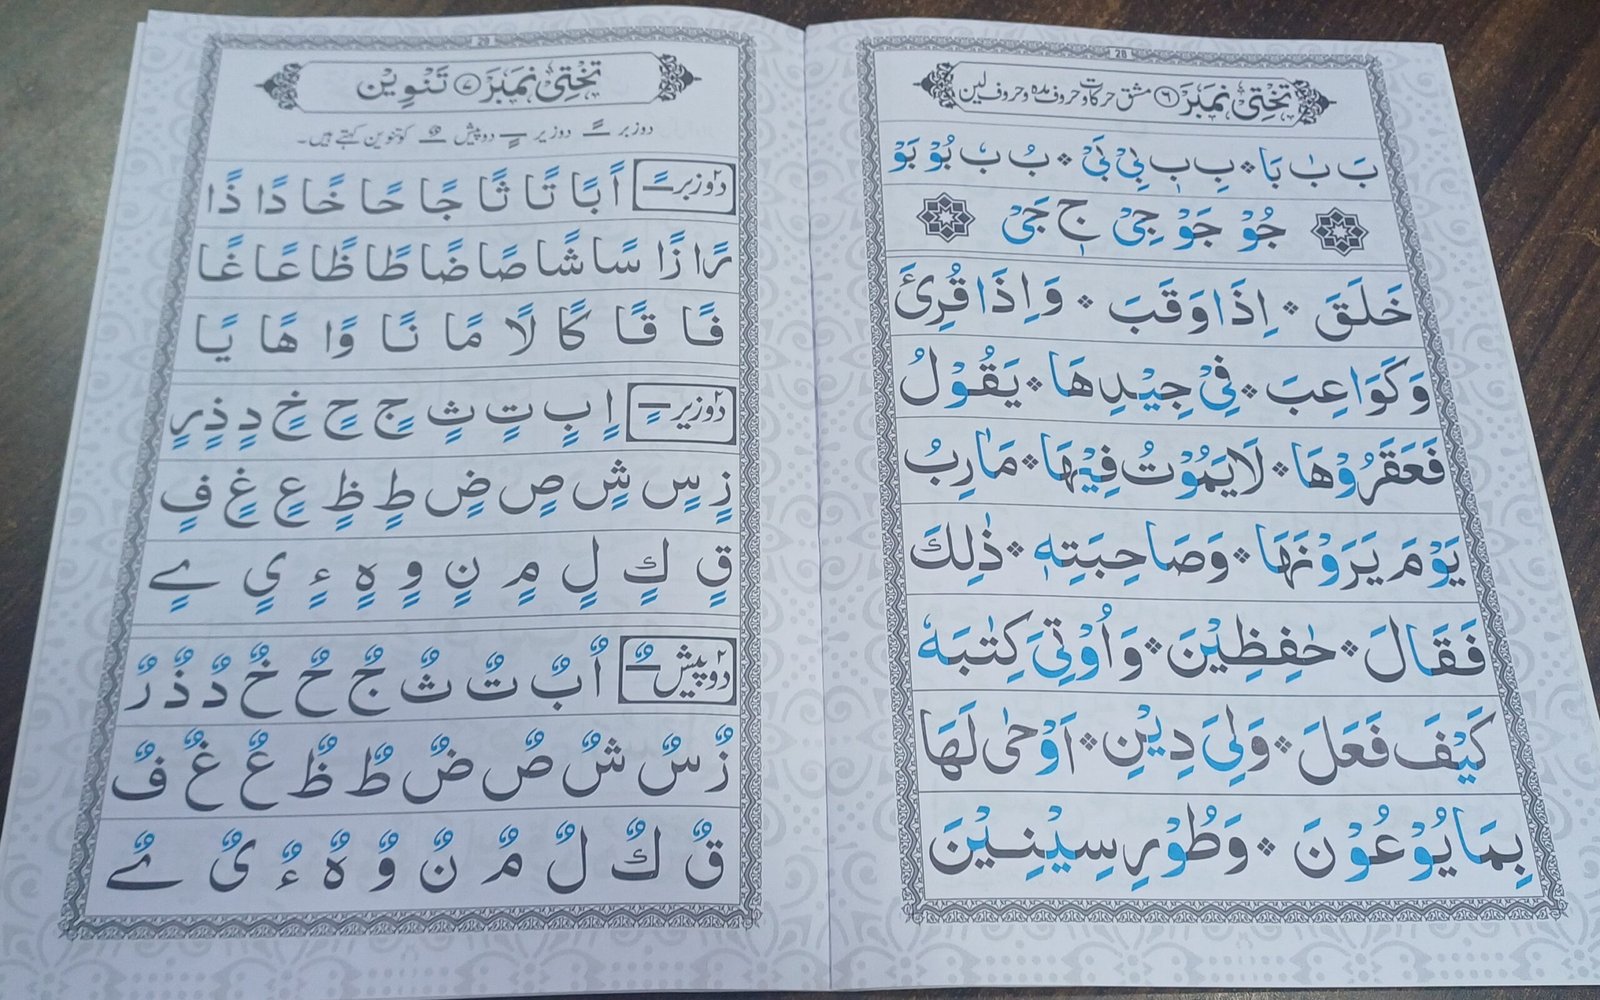 28
تختی نمبر ۶ مشق حرکات و حروف مدہ و حروف لین
بَ بٰ بَا ❖ بِ بٖ بِیْ بَیْ ❖ بُ بٗ بُوْ بَوْ
جُوْ جَوْ جِیْ جٖ جَیْ
خَلَقَ ❖ اِذَا وَقَبَ ❖ وَاِذَا قُرِئَ
وَكَوَاعِبَ ❖ فِیْ جِیْدِهَا ❖ یَقُوْلُ
فَعَقَرُوْهَا ❖ لَا یَمُوْتُ فِیْهَا ❖ مَاٰرِبُ
یَوْمَ یَرَوْنَهَا ❖ وَصَاحِبَتِهٖ ❖ ذٰلِكَ
فَقَالَ ❖ حٰفِظِیْنَ ❖ وَاُوْتِیَ كِتٰبَهٗ
كَیْفَ فَعَلَ ❖ وَلِیَ دِیْنِ ❖ اَوْحٰی لَهَا
بِمَا یُوْعُوْنَ ❖ وَطُوْرِ سِیْنِیْنَ
29
تختی نمبر ۷ تَنْوِیْن
دو زبر ـً دو زیر ـٍ دو پیش ـٌ کو تنوین کہتے ہیں۔
دو زبر ـً اً بًا تًا ثًا جًا حًا خًا دًا ذًا
رًا زًا سًا شًا صًا ضًا طًا ظًا عًا غًا
فًا قًا كًا لًا مًا نًا وًا هًا یًا
دو زیر ـٍ اٍ بٍ تٍ ثٍ جٍ حٍ خٍ دٍ ذٍ رٍ
زٍ سٍ شٍ صٍ ضٍ طٍ ظٍ عٍ غٍ فٍ
قٍ كٍ لٍ مٍ نٍ وٍ هٍ ءٍ یٍ ےٍ
دو پیش ـٌ اٌ بٌ تٌ ثٌ جٌ حٌ خٌ دٌ ذٌ رٌ
زٌ سٌ شٌ صٌ ضٌ طٌ ظٌ عٌ غٌ فٌ
قٌ كٌ لٌ مٌ نٌ وٌ هٌ ءٌ یٌ ےٌ